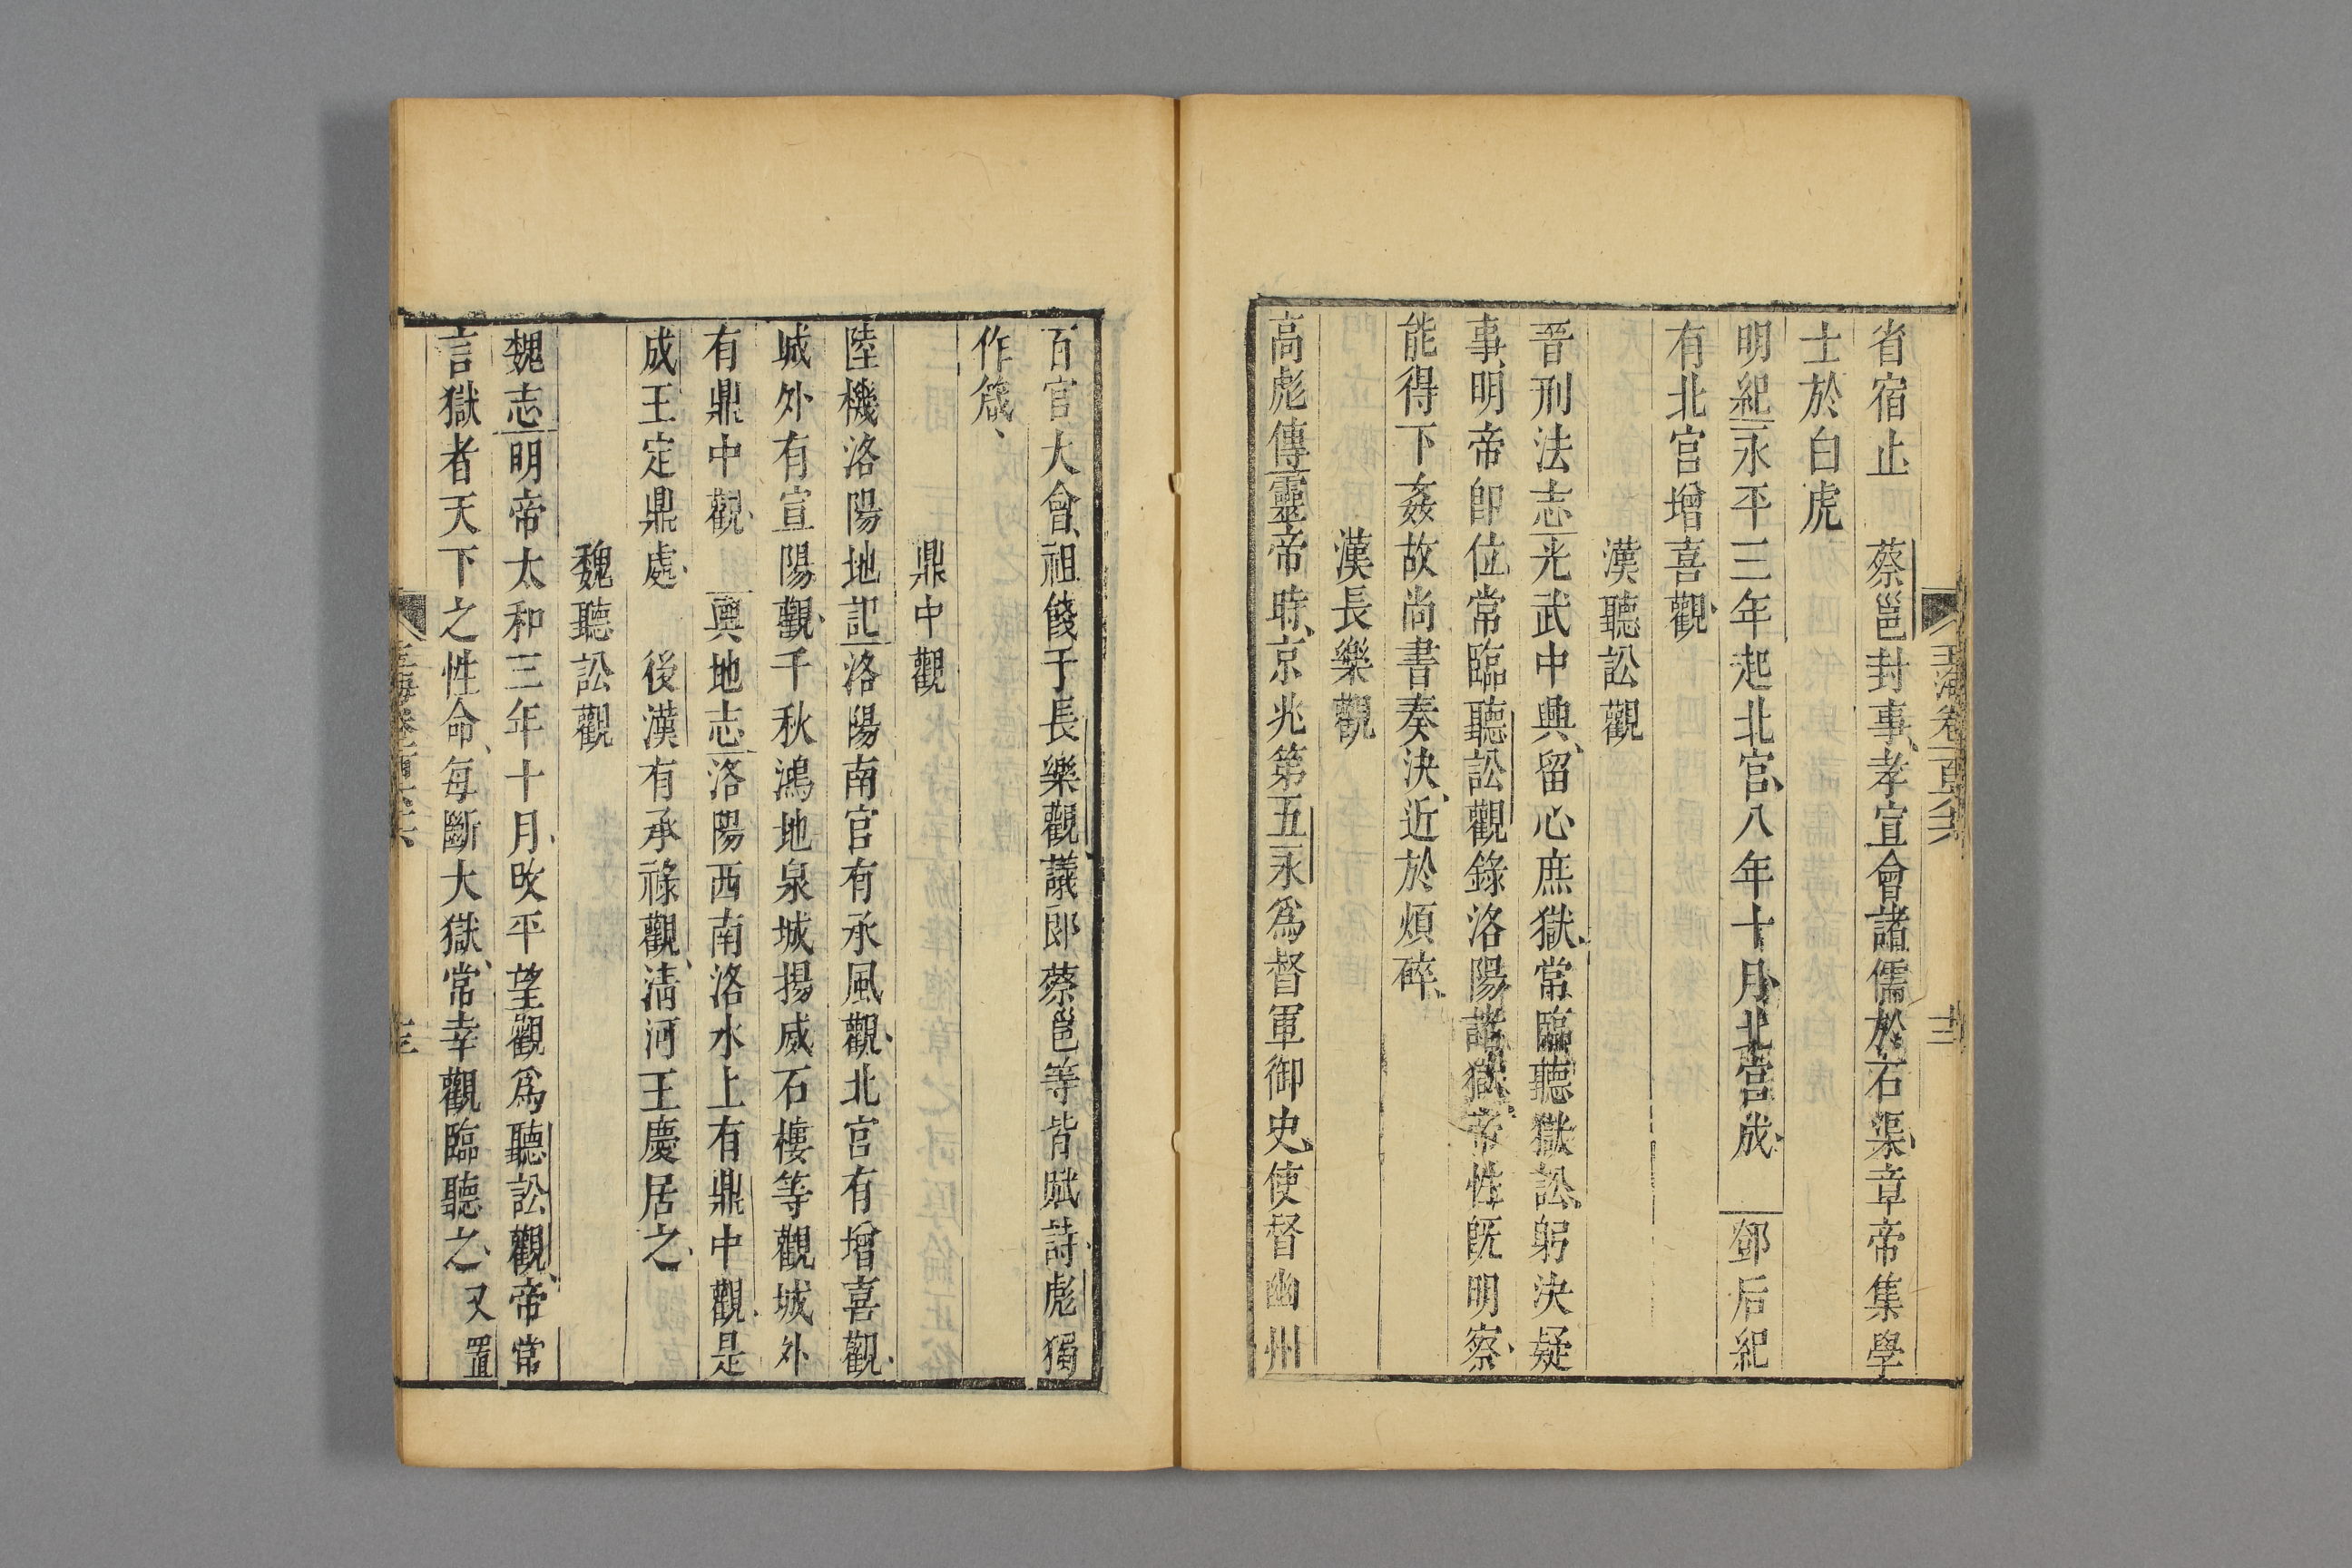 省宿止　蔡邕封事孝宣會諸儒於石渠章帝集學
士於白虎
明紀永平三年起北宮八年十月北宮成　鄧后紀
有北宮增喜觀
漢聽訟觀
晉刑法志光武中興留心庶獄常臨聽獄訟躬決疑
事明帝卽位常臨聽訟觀錄洛陽諸獄帝性旣明察
能得下姦故尚書奏決近於煩碎
漢長樂觀
高彪傳靈帝時京兆第五永爲督軍御史使督幽州
百官大會祖餞于長樂觀議郎蔡邕等皆賦詩彪獨
作箴
鼎中觀
陸機洛陽地記洛陽南宮有承風觀北宮有增喜觀
城外有宣陽觀千秋鴻地泉城揚威石樓等觀城外
有鼎中觀　輿地志洛陽西南洛水上有鼎中觀是
成王定鼎處　後漢有承祿觀淸河王慶居之
魏聽訟觀
魏志明帝太和三年十月改平望觀爲聽訟觀帝常
言獄者天下之性命每斷大獄常幸觀臨聽之又置